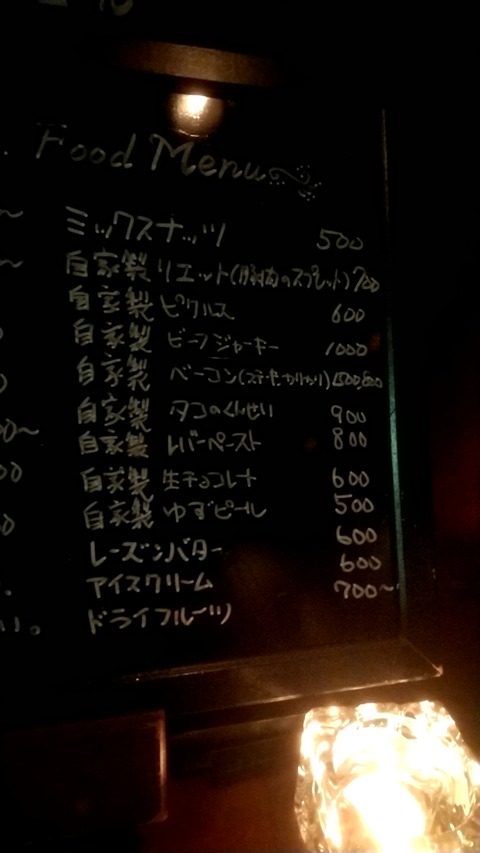 Food Menu
ミックスナッツ 500
自家製 リエット(豚肉のスプレット) 700
自家製 ピクルス 600
自家製 ビーフジャーキー 1000
自家製 ベーコン(ステーキ、カリカリ)
自家製 タコのくんせい 900
自家製 レバーペースト 800
自家製 生チョコレート 600
自家製 ゆずピール 500
レーズンバター 600
アイスクリーム 600
ドライフルーツ 700~